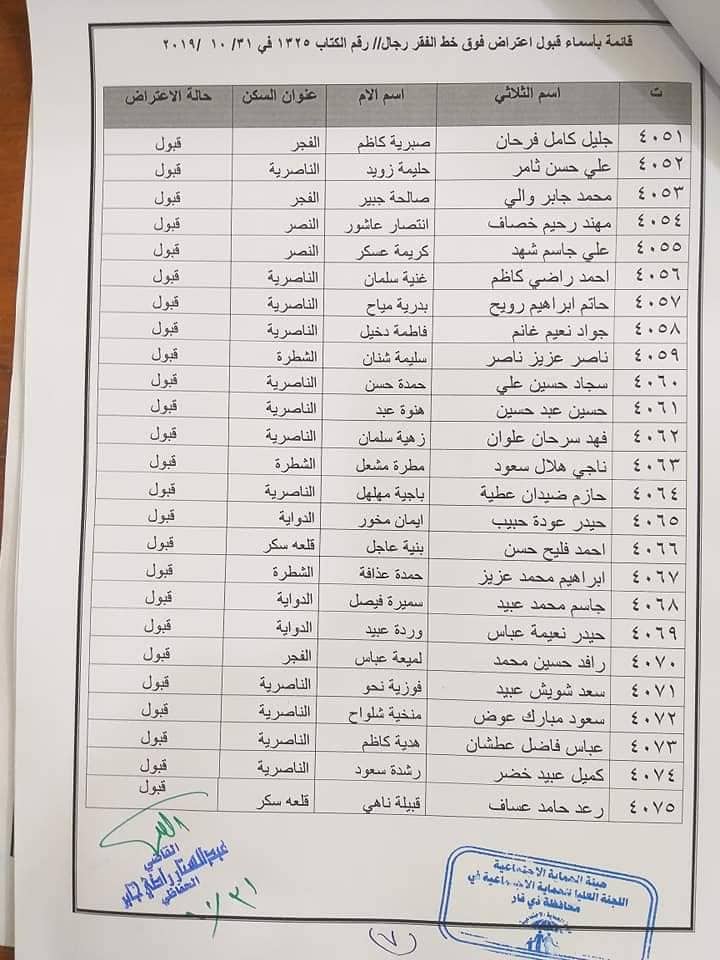 قائمة بأسماء قبول اعتراض فوق خط الفقر رجال// رقم الكتاب ١٣٢٥ في ٣١/ ١٠ /٢٠١٩
ت اسم الثلاثي اسم الام عنوان السكن حالة الاعتراض
٤٠٥١ جليل كامل فرحان صبرية كاظم الفجر قبول
٤٠٥٢ علي حسن ثامر حليمة زويد الناصرية قبول
٤٠٥٣ محمد جابر والي صالحة جبير الفجر قبول
٤٠٥٤ مهند رحيم خصاف انتصار عاشور النصر قبول
٤٠٥٥ علي جاسم شهد كريمة عسكر النصر قبول
٤٠٥٦ احمد راضي كاظم غنية سلمان الناصرية قبول
٤٠٥٧ حاتم ابراهيم رويح بدرية مياح الناصرية قبول
٤٠٥٨ جواد نعيم غانم فاطمة دخيل الناصرية قبول
٤٠٥٩ ناصر عزيز ناصر سليمة شنان الشطرة قبول
٤٠٦٠ سجاد حسين علي حمدة حسن الناصرية قبول
٤٠٦١ حسين عبد حسين هنوة عبد الناصرية قبول
٤٠٦٢ فهد سرحان علوان زهية سلمان الناصرية قبول
٤٠٦٣ ناجي هلال سعود مطرة مشعل الشطرة قبول
٤٠٦٤ حازم ضيدان عطية باجية مهلهل الناصرية قبول
٤٠٦٥ حيدر عودة حبيب ايمان مخور الدواية قبول
٤٠٦٦ احمد فليح حسن بنية عاجل قلعه سكر قبول
٤٠٦٧ ابراهيم محمد عزيز حمدة عذافة الشطرة قبول
٤٠٦٨ جاسم محمد عبيد سميرة فيصل الدواية قبول
٤٠٦٩ حيدر نعيمة عباس وردة عبيد الدواية قبول
٤٠٧٠ رافد حسين محمد لميعة عباس الفجر قبول
٤٠٧١ سعد شويش عبيد فوزية نحو الناصرية قبول
٤٠٧٢ سعود مبارك عوض منخية شلواح الناصرية قبول
٤٠٧٣ عباس فاضل عطشان هدية كاظم الناصرية قبول
٤٠٧٤ كميل عبيد خضر رشدة سعود الناصرية قبول
٤٠٧٥ رعد حامد عساف قبيلة ناهي قلعه سكر قبول
القاضي
عبدالستار راضي
هيئة الحماية الاجتماعية
اللجنة العليا للحماية الاجتماعية في
محافظة ذي قار
(٧)